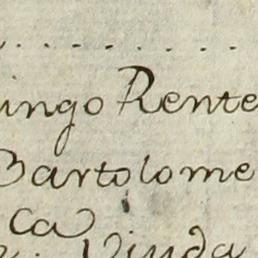 ingo Rente
Bartolome
Ca
Viuda